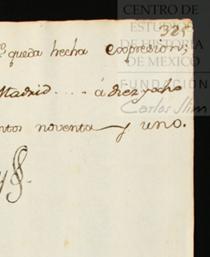 CENTRO DE
ESTUDIOS
DE HISTORIA
DE MEXICO
FUNDACIÓN
Carlos Slim
325
queda hecha expresion;
Madrid .... á diez y ocho
ntos noventa y uno.